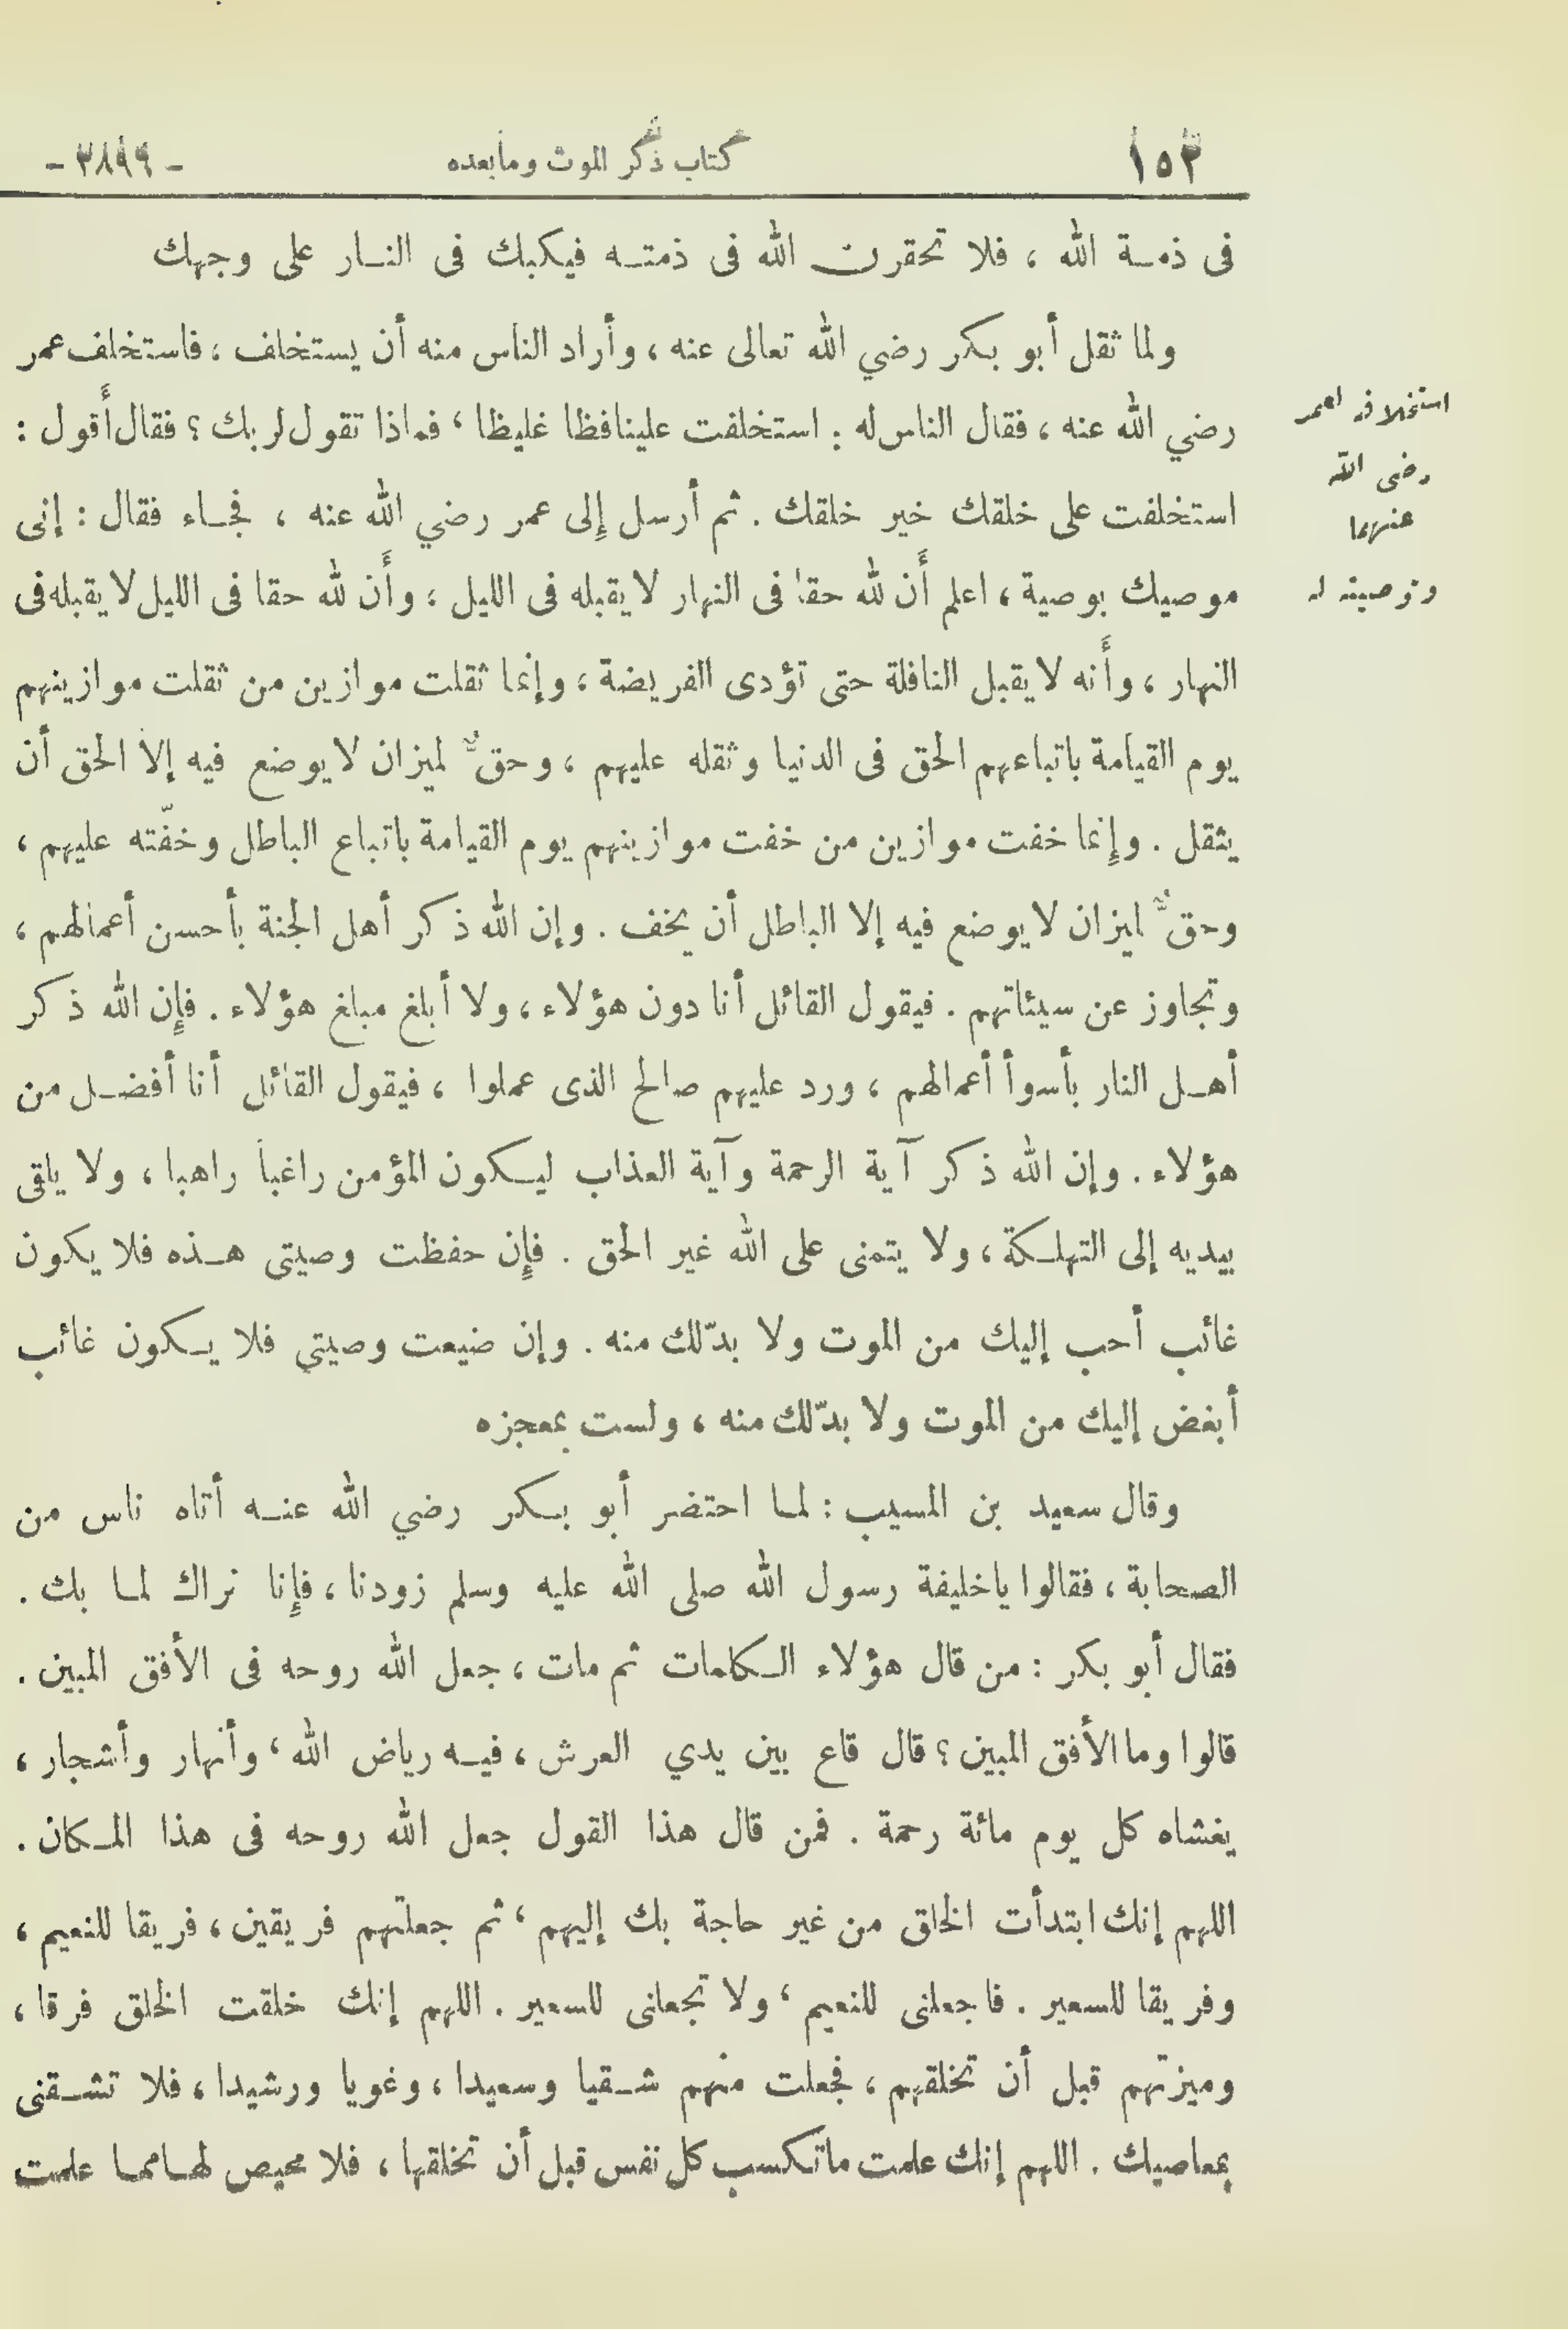 ١٥٣ كتاب ذكر الموت وما بعده - ٢٨٩٩ -
فى ذمة الله ، فلا تحقرن الله فى ذمته فيكبك فى النار على وجهك
ولما ثقل أبو بكر رضي الله تعالى عنه ، وأراد الناس منه أن يستخلف ، فاستخلف عمر
رضي الله عنه ، فقال الناس له : استخلفت علينا فظا غليظا ، فماذا تقول لربك ؟ فقال أقول :
استخلفت على خلقك خير خلقك . ثم أرسل إلى عمر رضي الله عنه ، فجاء فقال : إنى
موصيك بوصية ، اعلم أن لله حقا فى النهار لا يقبله فى الليل ، وأن لله حقا فى الليل لا يقبله فى
النهار ، وأنه لا يقبل النافلة حتى تؤدى الفريضة ، وإنما ثقلت موازين من ثقلت موازينهم
يوم القيامة باتباعهم الحق فى الدنيا وثقله عليهم ، وحقٌّ لميزان لا يوضع فيه إلا الحق أن
يثقل . وإنما خفت موازين من خفت موازينهم يوم القيامة باتباع الباطل وخفّته عليهم ،
وحقٌّ لميزان لا يوضع فيه إلا الباطل أن يخف . وإن الله ذكر أهل الجنة بأحسن أعمالهم ،
وتجاوز عن سيئاتهم . فيقول القائل أنا دون هؤلاء ، ولا أبلغ مبلغ هؤلاء . فإن الله ذكر
أهل النار بأسوأ أعمالهم ، ورد عليهم صالح الذى عملوا ، فيقول القائل أنا أفضل من
هؤلاء . وإن الله ذكر آية الرحمة وآية العذاب ليكون المؤمن راغبا راهبا ، ولا يلقى
بيديه إلى التهلكة ، ولا يتمنى على الله غير الحق . فإن حفظت وصيتى هذه فلا يكون
غائب أحب إليك من الموت ولا بدّ لك منه . وإن ضيعت وصيتي فلا يكون غائب
أبغض إليك من الموت ولا بدّ لك منه ، ولست بمعجزه
وقال سعيد بن المسيب : لما احتضر أبو بكر رضي الله عنه أتاه ناس من
الصحابة ، فقالوا ياخليفة رسول الله صلى الله عليه وسلم زودنا ، فإنا نراك لما بك .
فقال أبو بكر : من قال هؤلاء الكلمات ثم مات ، جعل الله روحه فى الأفق المبين .
قالوا وما الأفق المبين ؟ قال قاع بين يدي العرش ، فيه رياض الله ، وأنهار وأشجار ،
يغشاه كل يوم مائة رحمة . فمن قال هذا القول جعل الله روحه فى هذا المكان .
اللهم إنك ابتدأت الخلق من غير حاجة بك إليهم ، ثم جعلتهم فريقين ، فريقا للنعيم ،
وفريقا للسعير . فاجعلنى للنعيم ، ولا تجعلنى للسعير . اللهم إنك خلقت الخلق فرقا ،
وميزتهم قبل أن تخلقهم ، فجعلت منهم شقيا وسعيدا ، وغويا ورشيدا ، فلا تشقنى
بمعاصيك . اللهم إنك علمت ماتكسب كل نفس قبل أن تخلقها ، فلا محيص لها مما علمت
استخلافه لعمر
رضى الله
عنهما
وتوصيته له